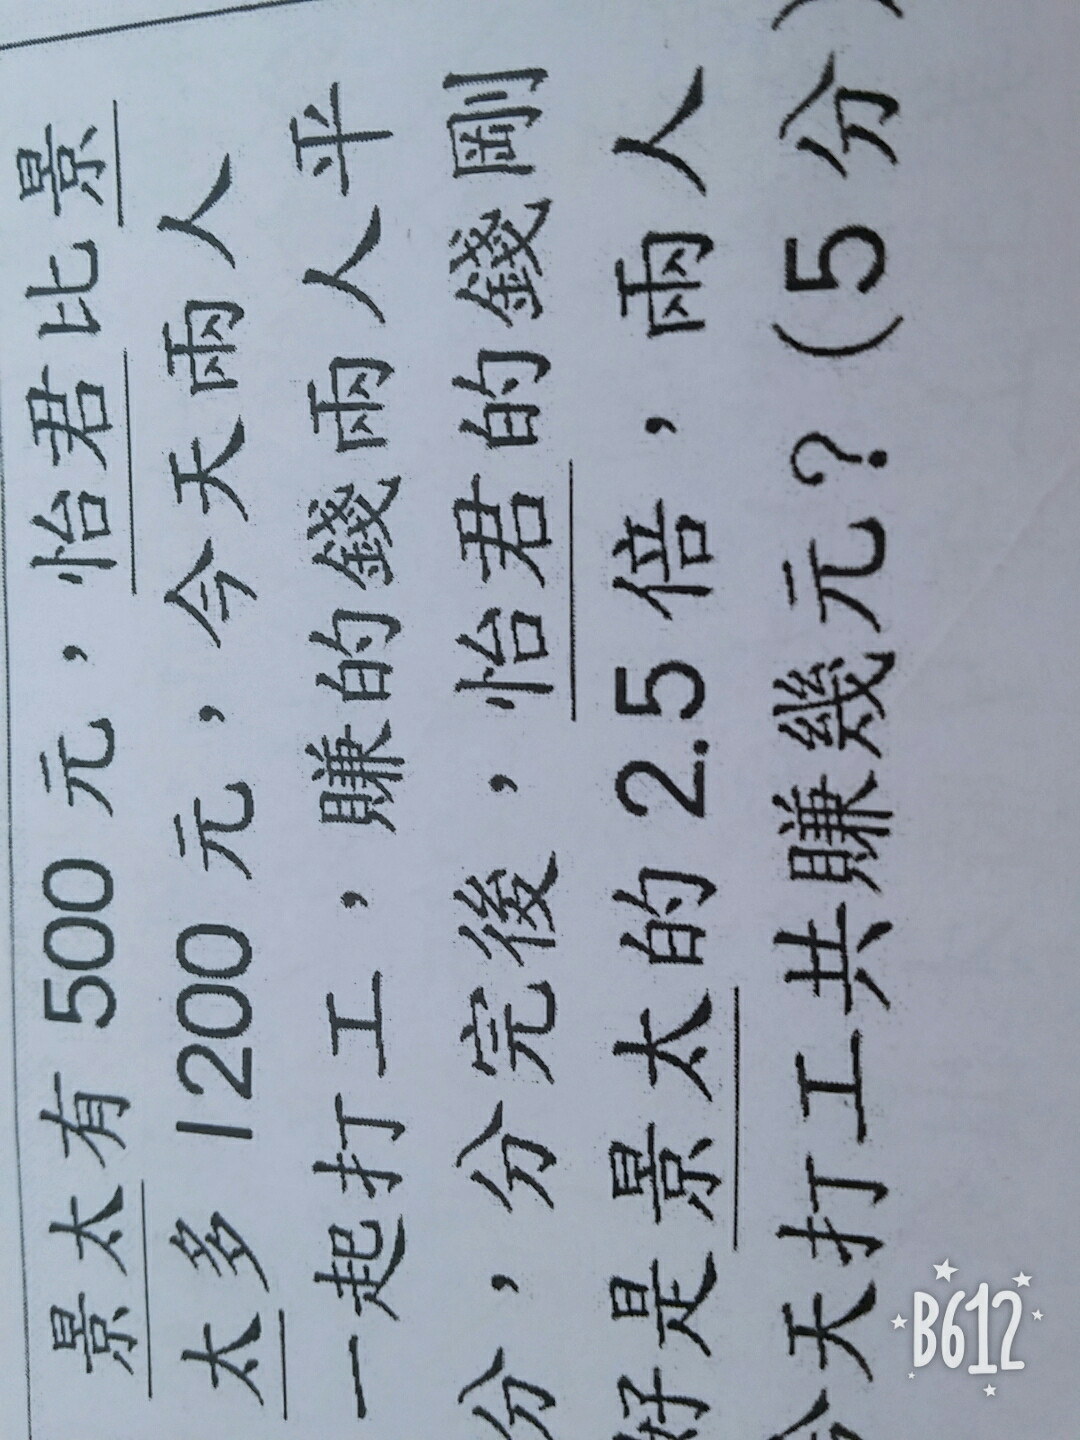 景太有 500 元，怡君比景
太多 1200 元，今天兩人
一起打工，賺的錢兩人平
分，分完後，怡君的錢剛
好是景太的 2.5 倍，兩人
今天打工共賺幾元？(5 分)
B612